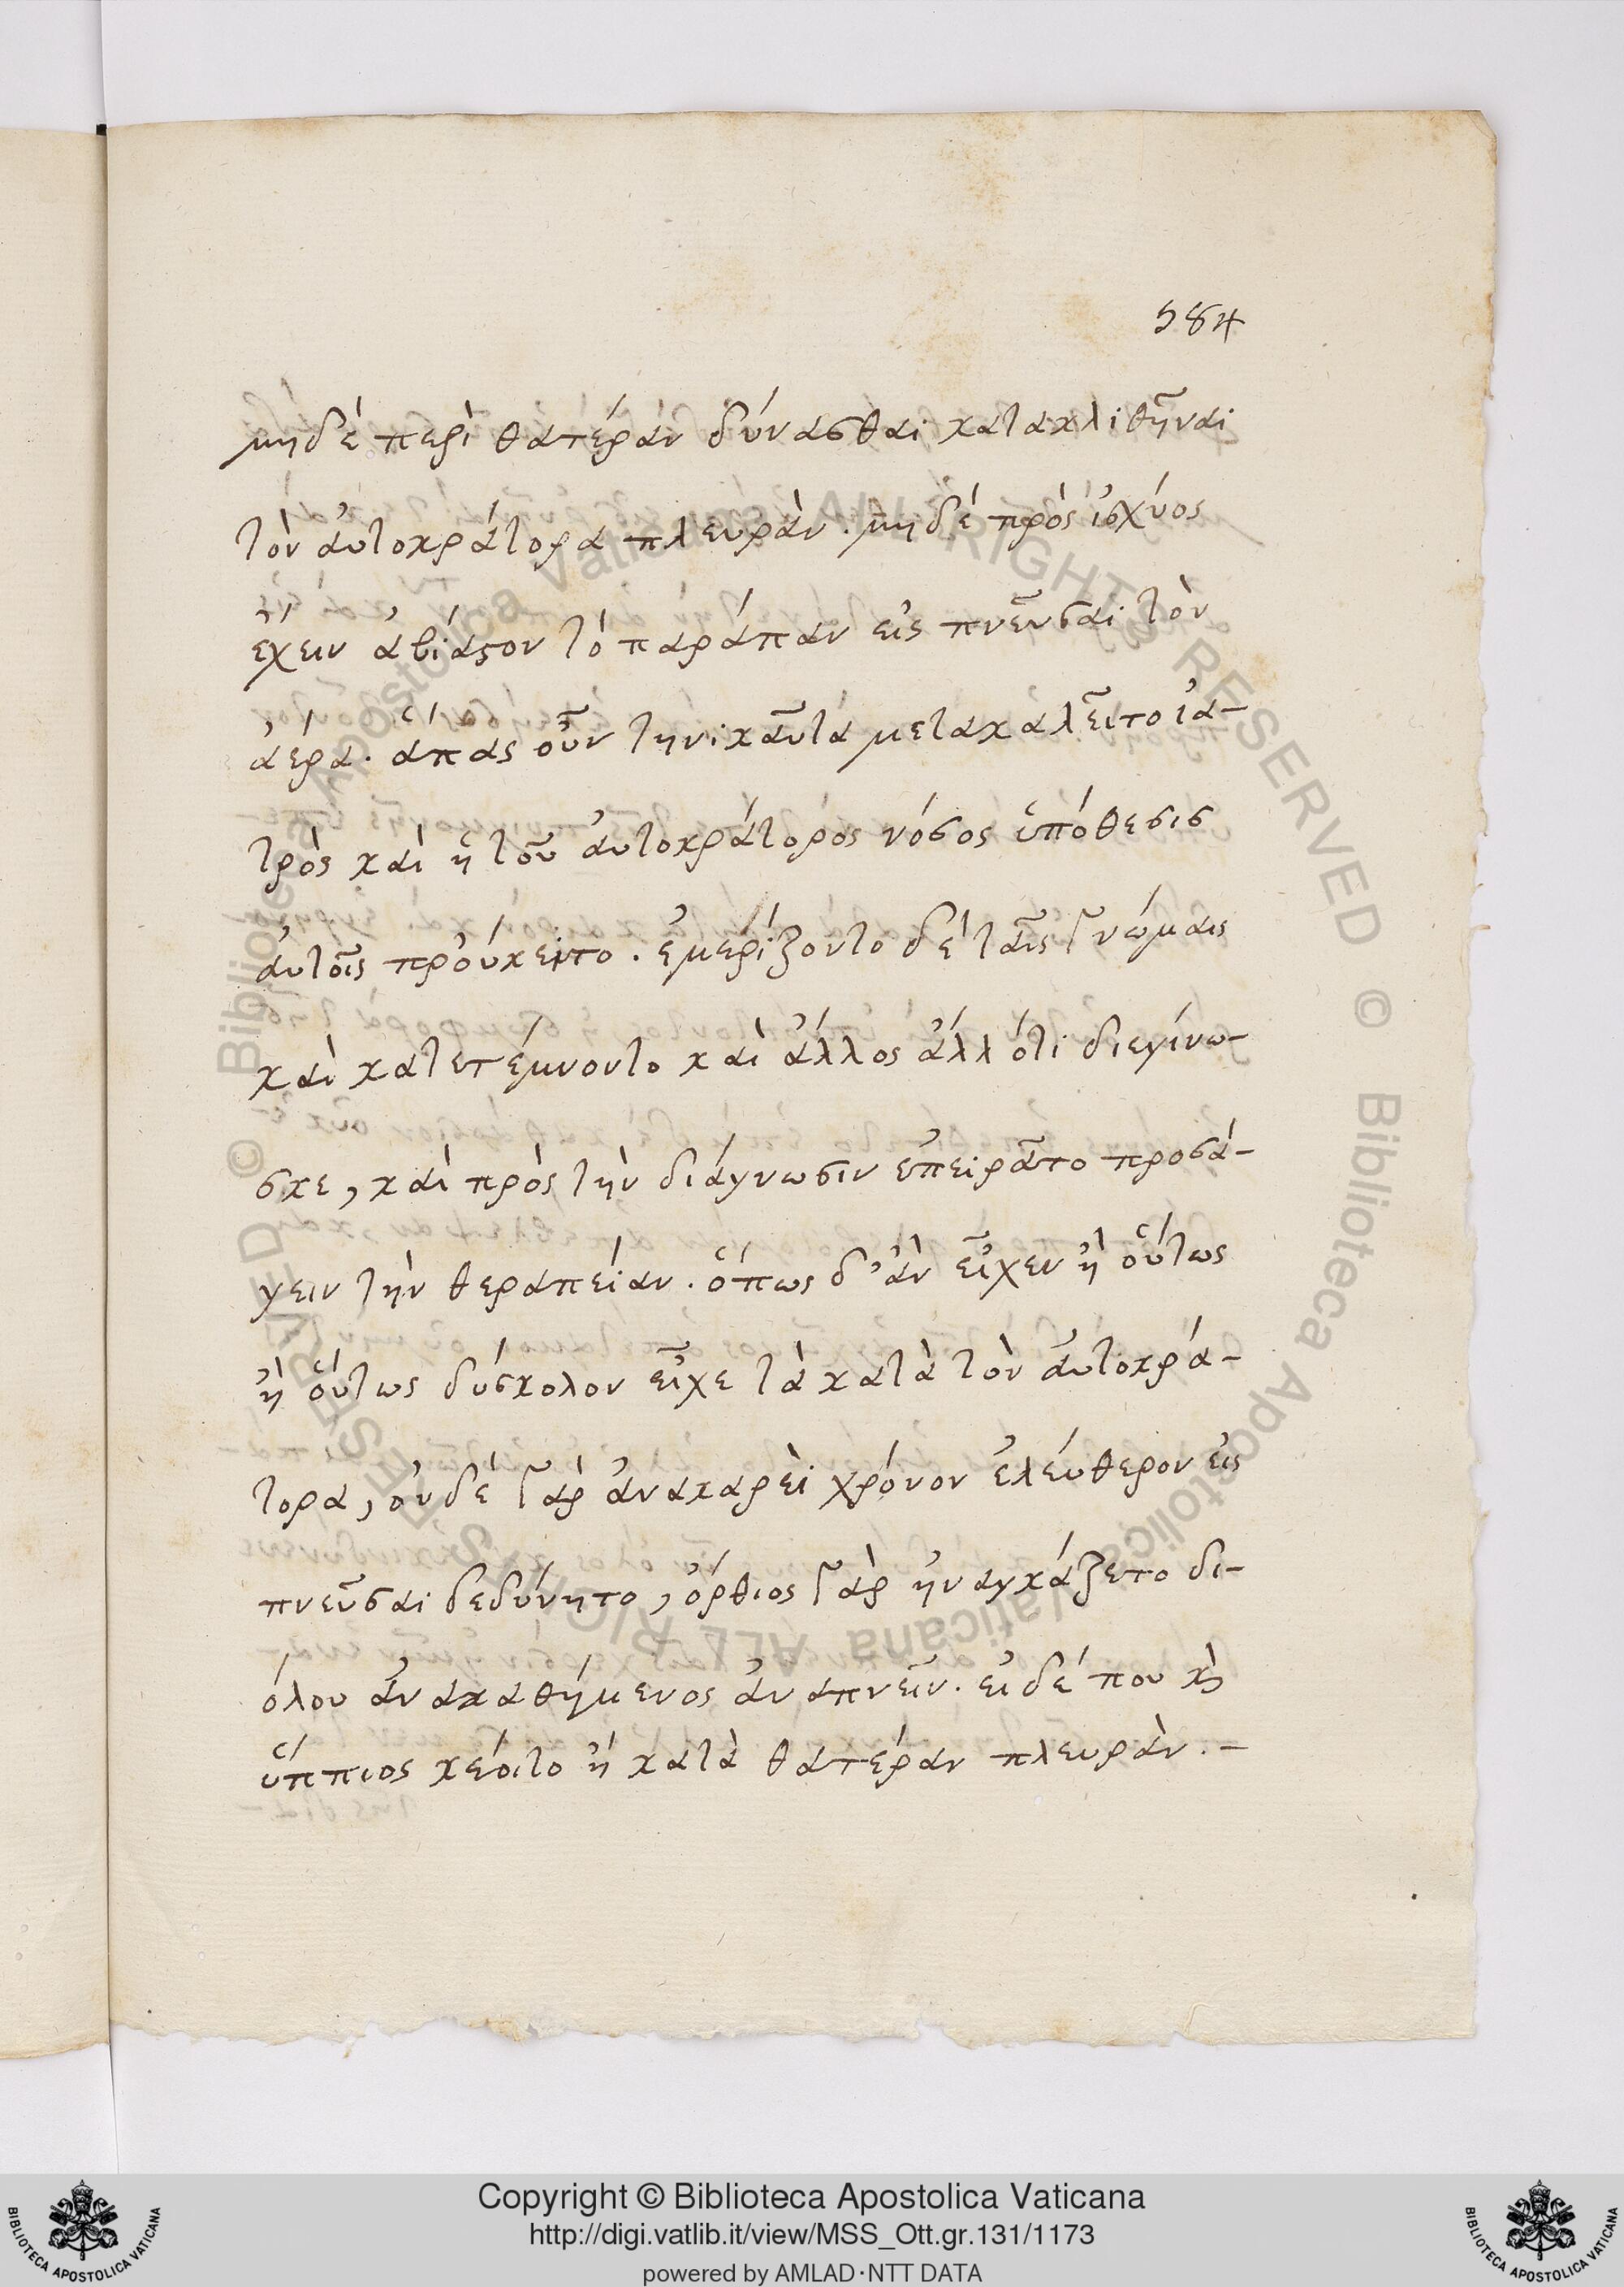 584
μηδὲ περὶ θατέραν δύνασθαι κατακλιθῆναι
τὸν αὐτοκράτορα πλευράν. μηδὲ πρὸς ἰσχύος
ἔχειν ἀβίαστον τὸ παράπαν εἰς πνεῦσαι τὸν
ἀέρα. ἅπας οὖν τηνικαῦτα μετακαλεῖτο ἰα-
τρὸς καὶ ἡ τοῦ αὐτοκράτορος νόσος ὑπόθεσις
αὐτοῖς προὔκειτο. ἐμερίζοντο δὲ ταῖς γνώμαις
καὶ κατετέμνοντο καὶ ἄλλος ἄλλότι διεγίνω-
σκε, καὶ πρὸς τὴν διάγνωσιν ἐπειρᾶτο προσά-
γειν τὴν θεραπείαν. ὅπως δ' ἂν εἶχεν ἢ οὕτως
ἢ οὕτως δύσκολον εἶχε τὰ κατὰ τὸν αὐτοκρά-
τορα, οὐδὲ γὰρ ἀνακαρεὶ χρόνον ἐλεύθερον εἰς
πνεῦσαι δεδύνητο, ὄρθιος γὰρ ἠναγκάζετο δι-
όλου ἀνακαθήμενος ἀναπνεῖν. εἰ δέ που κὴ
ὕππιος κέοιτο ἢ κατὰ θατέραν πλευράν.-
Copyright © Biblioteca Apostolica Vaticana
http://digi.vatlib.it/view/MSS_Ott.gr.131/1173
powered by AMLAD·NTT DATA
BIBLIOTECA APOSTOLICA VATICANA
BIBLIOTECA APOSTOLICA VATICANA